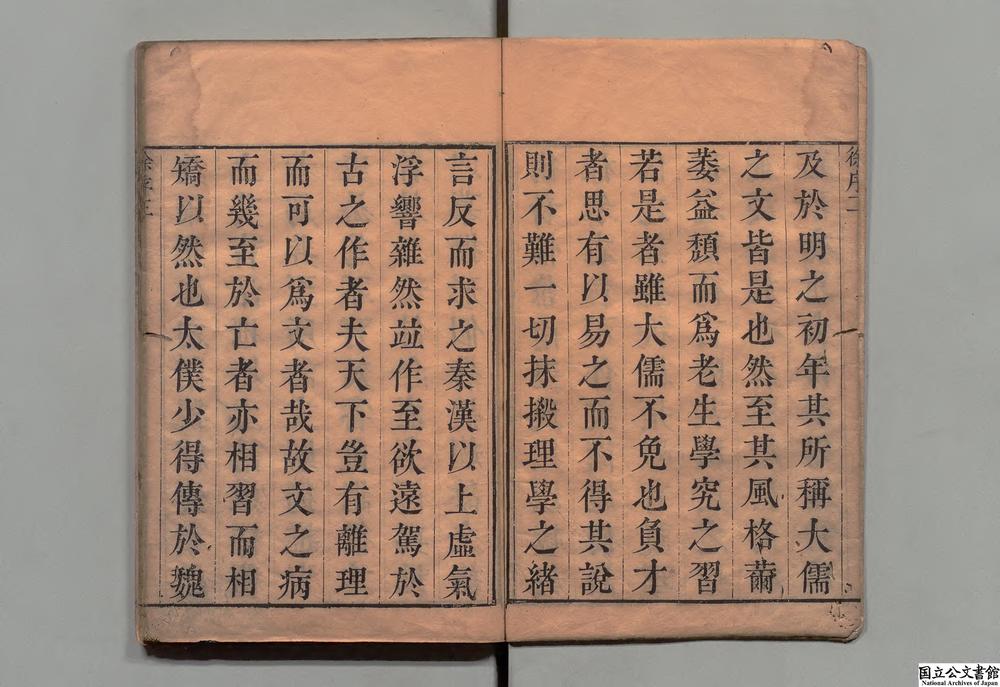 徐序二
及於明之初年其所稱大儒
之文皆是也然至其風格薾
萎益頽而爲老生學究之習
若是者雖大儒不免也負才
者思有以易之而不得其說
則不難一切抹摋理學之緒
言反而求之秦漢以上虛氣
浮響雜然竝作至欲遠駕於
古之作者夫天下豈有離理
而可以爲文者哉故文之病
而幾至於亡者亦相習而相
矯以然也太僕少得傳於魏
徐序三
国立公文書館
National Archives of Japan